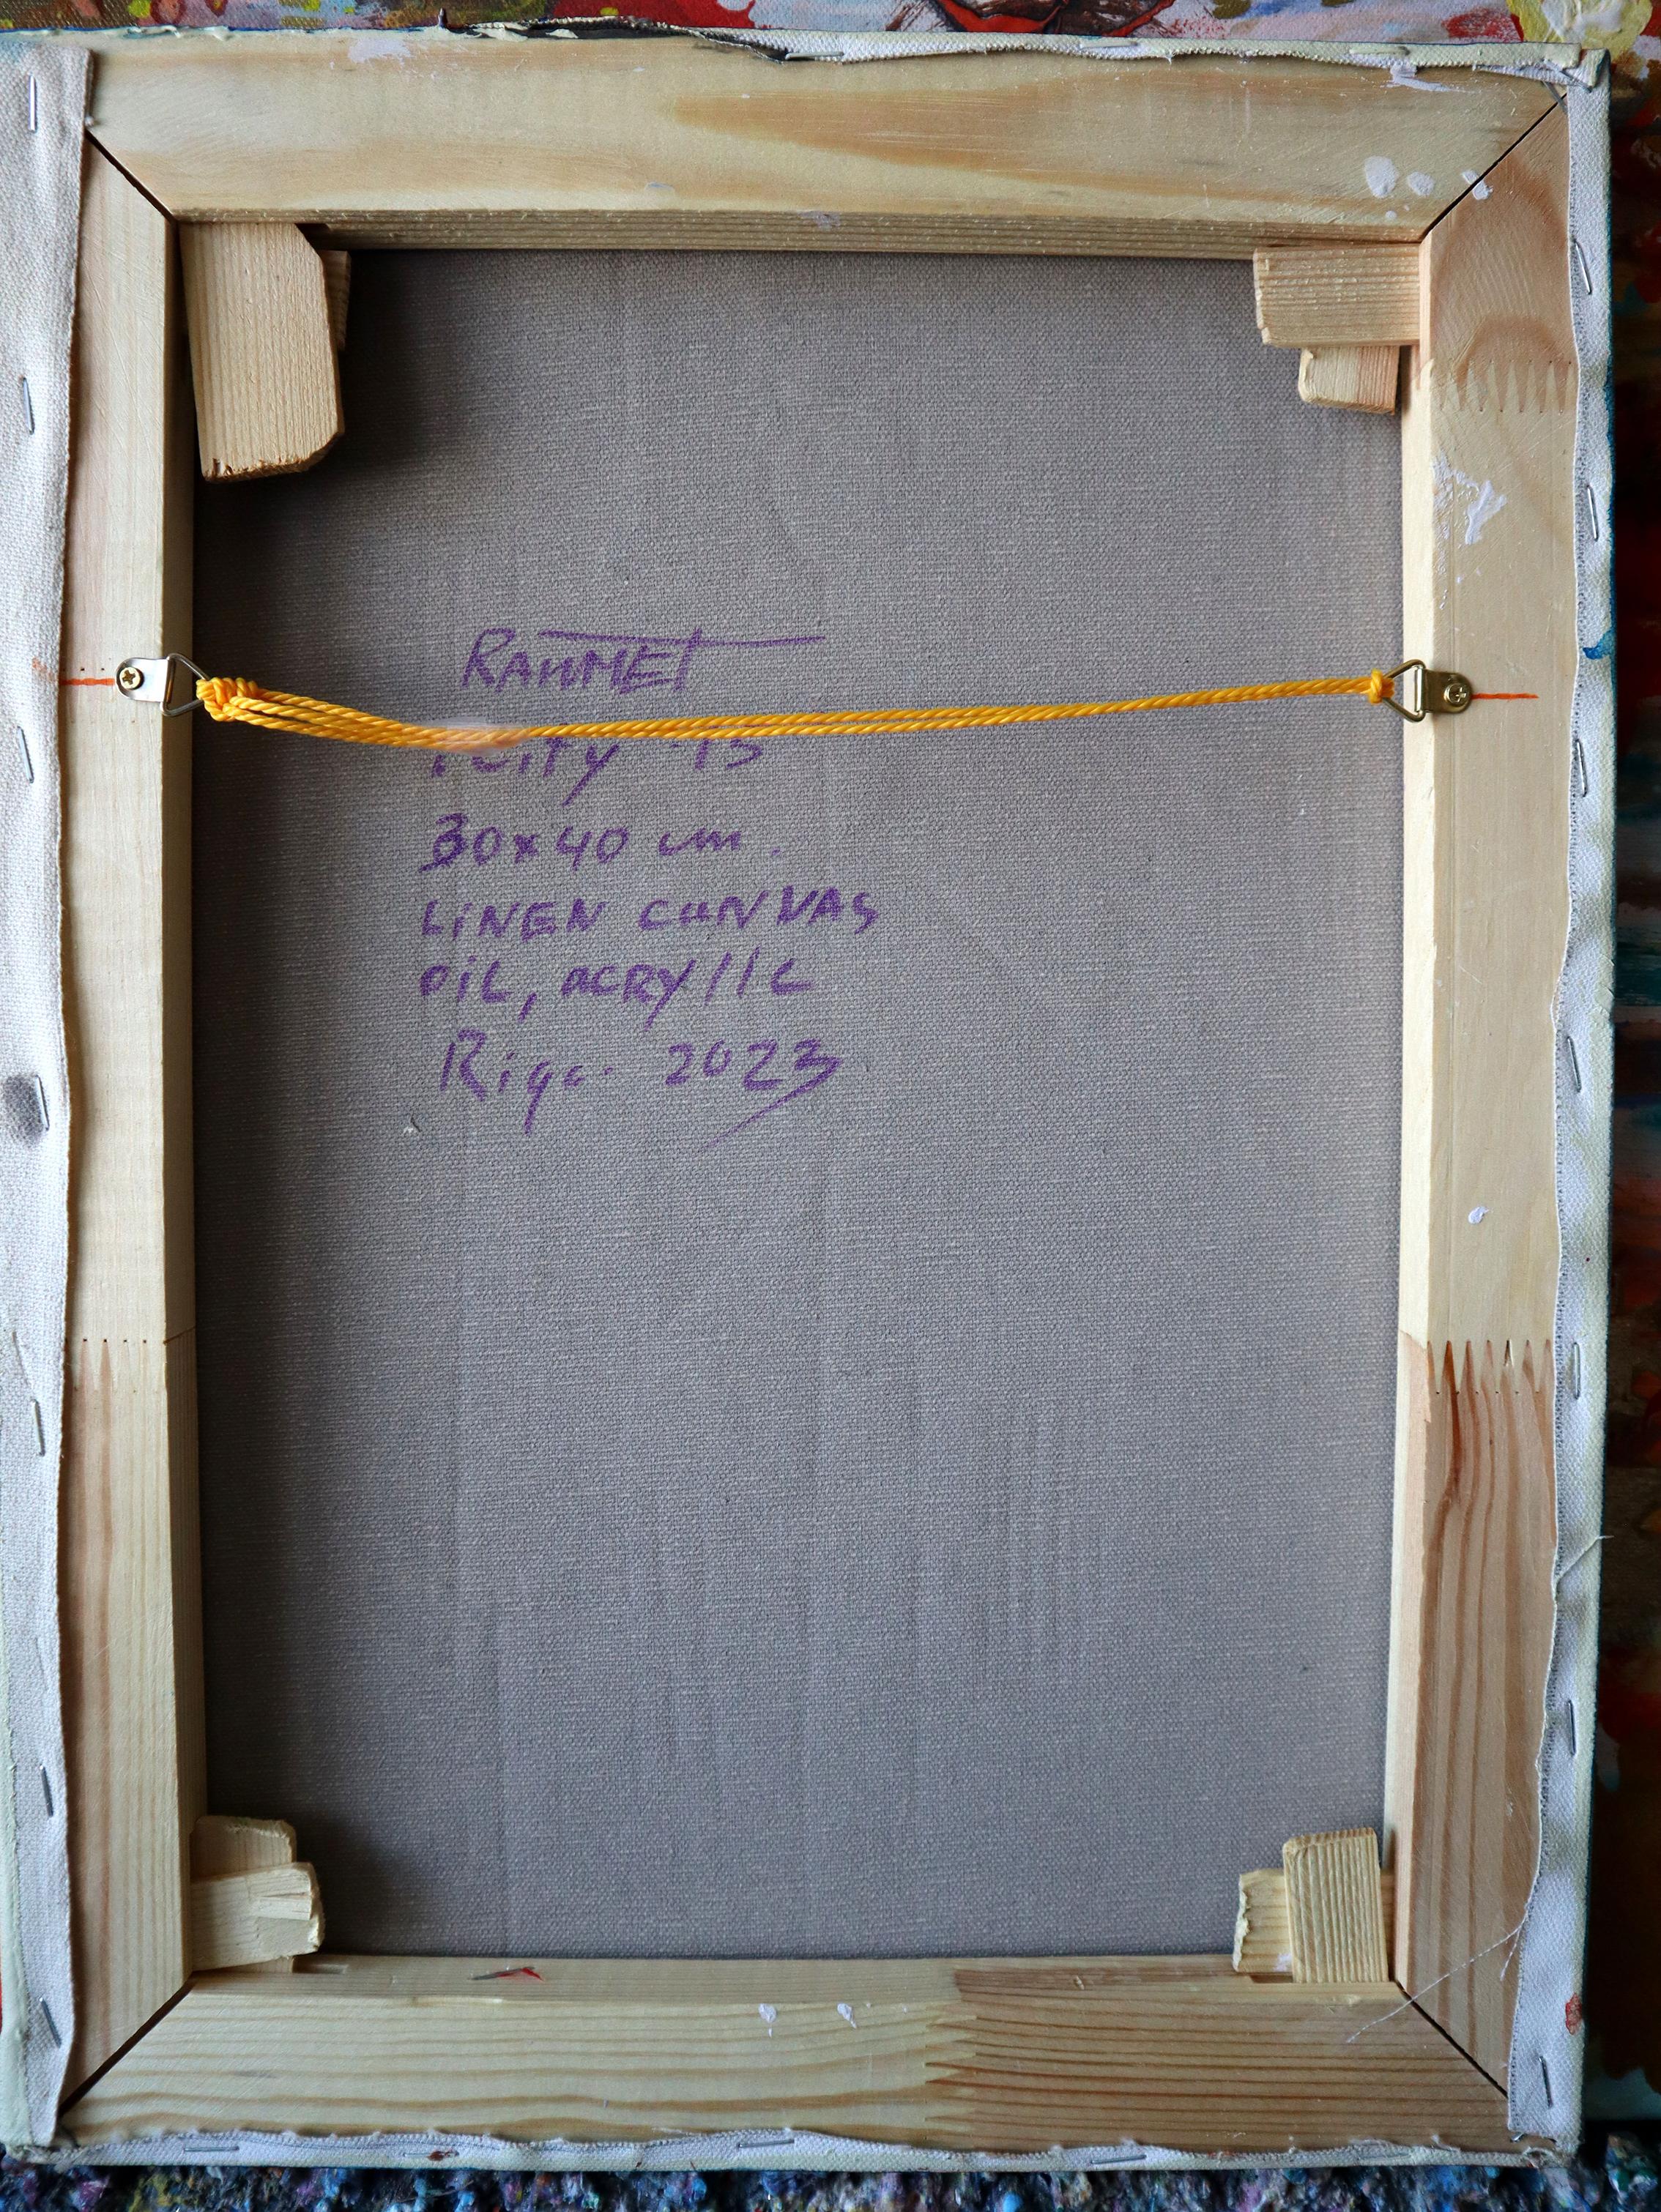 RAHMET
City 13
30x40 cm.
LiNEN CANVAS
OiL, ACRYLIC
Riga. 2023